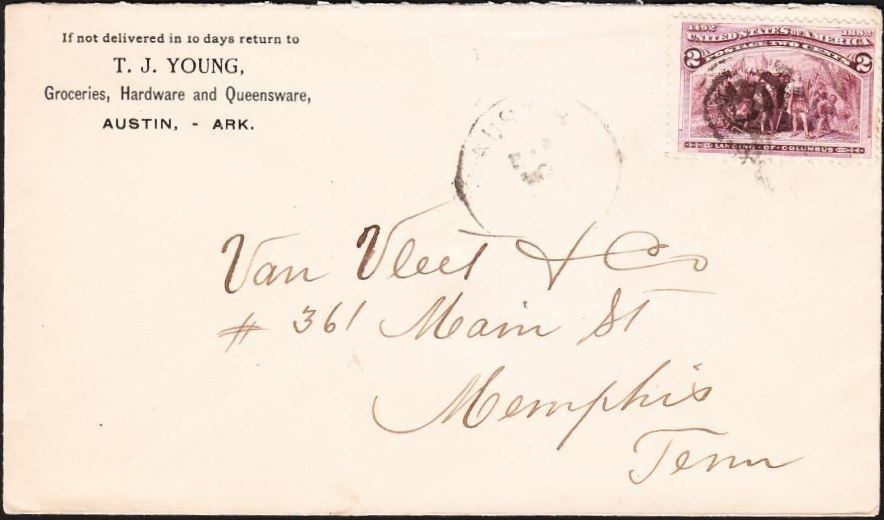 If not delivered in 10 days return to
T. J. YOUNG,
Groceries, Hardware and Queensware,
AUSTIN, - ARK.
1492 1892
UNITED STATES OF AMERICA
POSTAGE TWO CENTS
2 2
LANDING · OF · COLUMBUS
AUSTIN
Van Vleet & Co
# 361 Main St
Memphis
Tenn